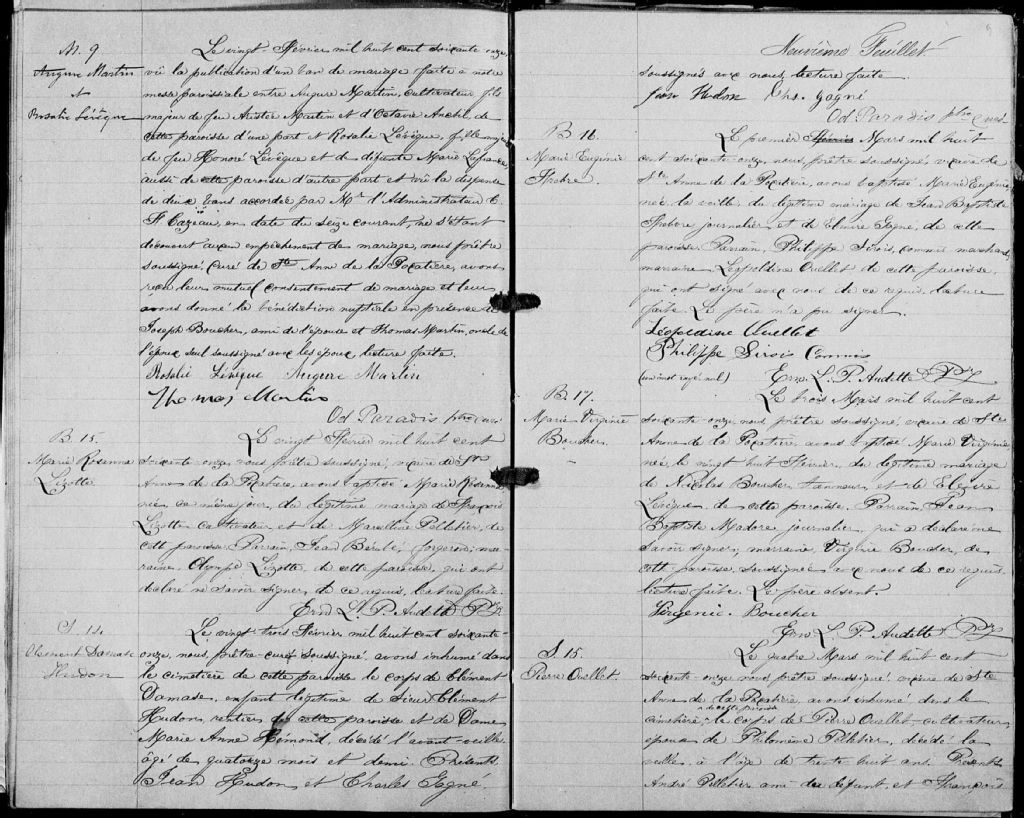 M. 9
Augure Martin
et
Rosalie Lévêque
Le vingt Février mil huit cent soixante onze,
vû la publication d'un ban de mariage faite à notre
messe paroissiale entre Augure Martin, cultivateur, fils
majeur de feu Aristée Martin et d'Octavie Anctil, de
cette paroisse d'une part et Rosalie Lévêque, fille majeure
de feu Honoré Lévêque et de défunte Marie Lafrance,
aussi de cette paroisse d'autre part et vû la dispense
de deux bans accordée par Mr. l'Administrateur C.
F. Cazeau, en date du seize courant, ne s'étant
découvert aucun empêchement de mariage, nous prêtre
soussigné, curé de Ste Anne de la Pocatière, avons
reçu leur mutuel consentement de mariage et leur
avons donné la bénédiction nuptiale en présence de
Joseph Boucher, ami de l'épouse et Thomas Martin, oncle de
l'époux seul soussigné avec les époux, lecture faite.
Rosalie Lévêque Augure Martin
Thomas Martin
Od Paradis ptre curé
B. 15.
Marie Rosanna
Lizotte
Le vingt Février mil huit cent
soixante onze, nous prêtre soussigné, vicaire de Ste
Anne de la Pocatière, avons baptisé Marie Rosanna,
née ce même jour, du légitime mariage de François
Lizotte cultivateur et de Marcelline Pelletier, de
cette paroisse. Parrain, Jean Bérubé, forgeron; mar-
raine, Olympe Lizotte, de cette paroisse, qui ont
déclaré ne savoir signer, de ce requis, lecture faite.
Ern L. P. Audette Ptr
S. 14.
Clément Damase
Hudon
Le vingt trois Février mil huit cent soixante-
onze, nous, prêtre-curé soussigné, avons inhumé dans
le cimetière de cette paroisse le corps de Clément
Damase, enfant légitime de Sieur Clément
Hudon, rentier de cette paroisse et de Dame
Marie Anne Hémond, décédé l'avant-veille
âgé de quatorze mois et demi. Présents
Jean Hudon et Charles Gagné
Neuvième Feuillet
soussignés avec nous lecture faite
Jean Hudon Chs. Gagné
Od Paradis ptre curé
B 16.
Marie Eugénie
Le premier Février Mars mil huit
cent soixante onze, nous, prêtre soussigné, vicaire de
Ste Anne de la Pocatière, avons baptisé Marie Eugénie,
née la veille du légitime mariage de Jean Baptiste
journalier, et de Elmire Gagné, de cette
paroisse. Parrain, Philippe Sirois, commis marchand,
marraine Léopoldine Ouellet de cette paroisse,
qui ont signé avec nous de ce requis, lecture
faite. Le père n'a pu signer.
Léopoldine Ouellet
Philippe Sirois Commis
(un mot rayé nul) Ern. L. P. Audette Ptr
B. 17.
Marie Virginie
Boucher.
Le trois Mars mil huit cent
soixante onze, nous prêtre soussigné, vicaire de Ste
Anne de la Pocatière, avons baptisé Marie Virginie
née, le vingt huit Février, du légitime mariage
de Nicolas Boucher, tanneur, et de Elzire
Lévêque, de cette paroisse. Parrain, Jean
Baptiste Madore journalier, qui a déclaré ne
savoir signer; marraine Virginie Boucher, de
cette paroisse, soussignée avec nous de ce requis
lecture faite. Le père absent.
Vergenie. Boucher
Ern L. P. Audette Ptr
S. 15.
Pierre Ouellet.
Le quatre Mars mil huit cent
soixante onze nous prêtre soussigné, vicaire de Ste
Anne de la Pocatière, avons inhumé dans le
de cette paroisse
cimetière, le corps de Pierre Ouellet, cultivateur
époux de Philomène Pelletier, décédé la
veille, à l'âge de trente huit ans. Présents
André Pelletier ami du défunt, et François